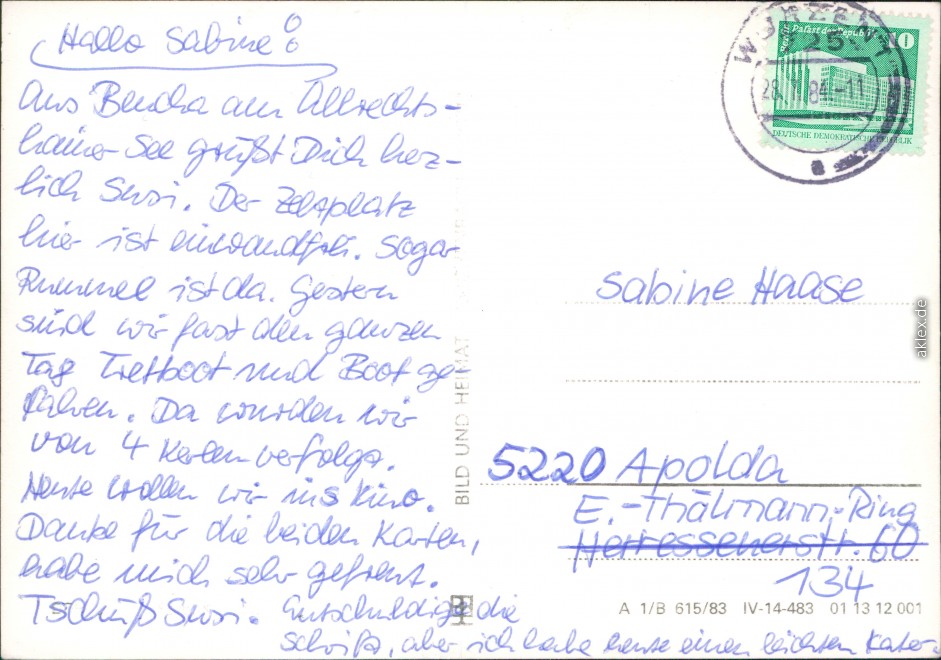 Hallo Sabine!
Aus Beucha am Albrechts-
hainer See grüßt Dich herz-
lich Susi. Der Zeltplatz
hier ist einwandfrei. Sogar
Rummel ist da. Gestern
sind wir fast den ganzen
Tag Tretboot und Boot ge-
fahren. Da wurden wir
von 4 Kerlen verfolgt.
Heute wollen wir ins Kino.
Danke für die beiden Karten,
habe mich sehr gefreut.
Tschüß Susi. Entschuldige die
Schrift, aber ich habe heute einen leichten Kater.
BILD UND HEIMAT
WURZEN 1
7250
28. 84.-11
Palast der Republik
10
DEUTSCHE DEMOKRATISCHE REPUBLIK
Sabine Haase
5220 Apolda
E.-Thälmann-Ring
Herressenerstr. 60
134
A 1/B 615/83 IV-14-483 01 13 12 001
aklex.de